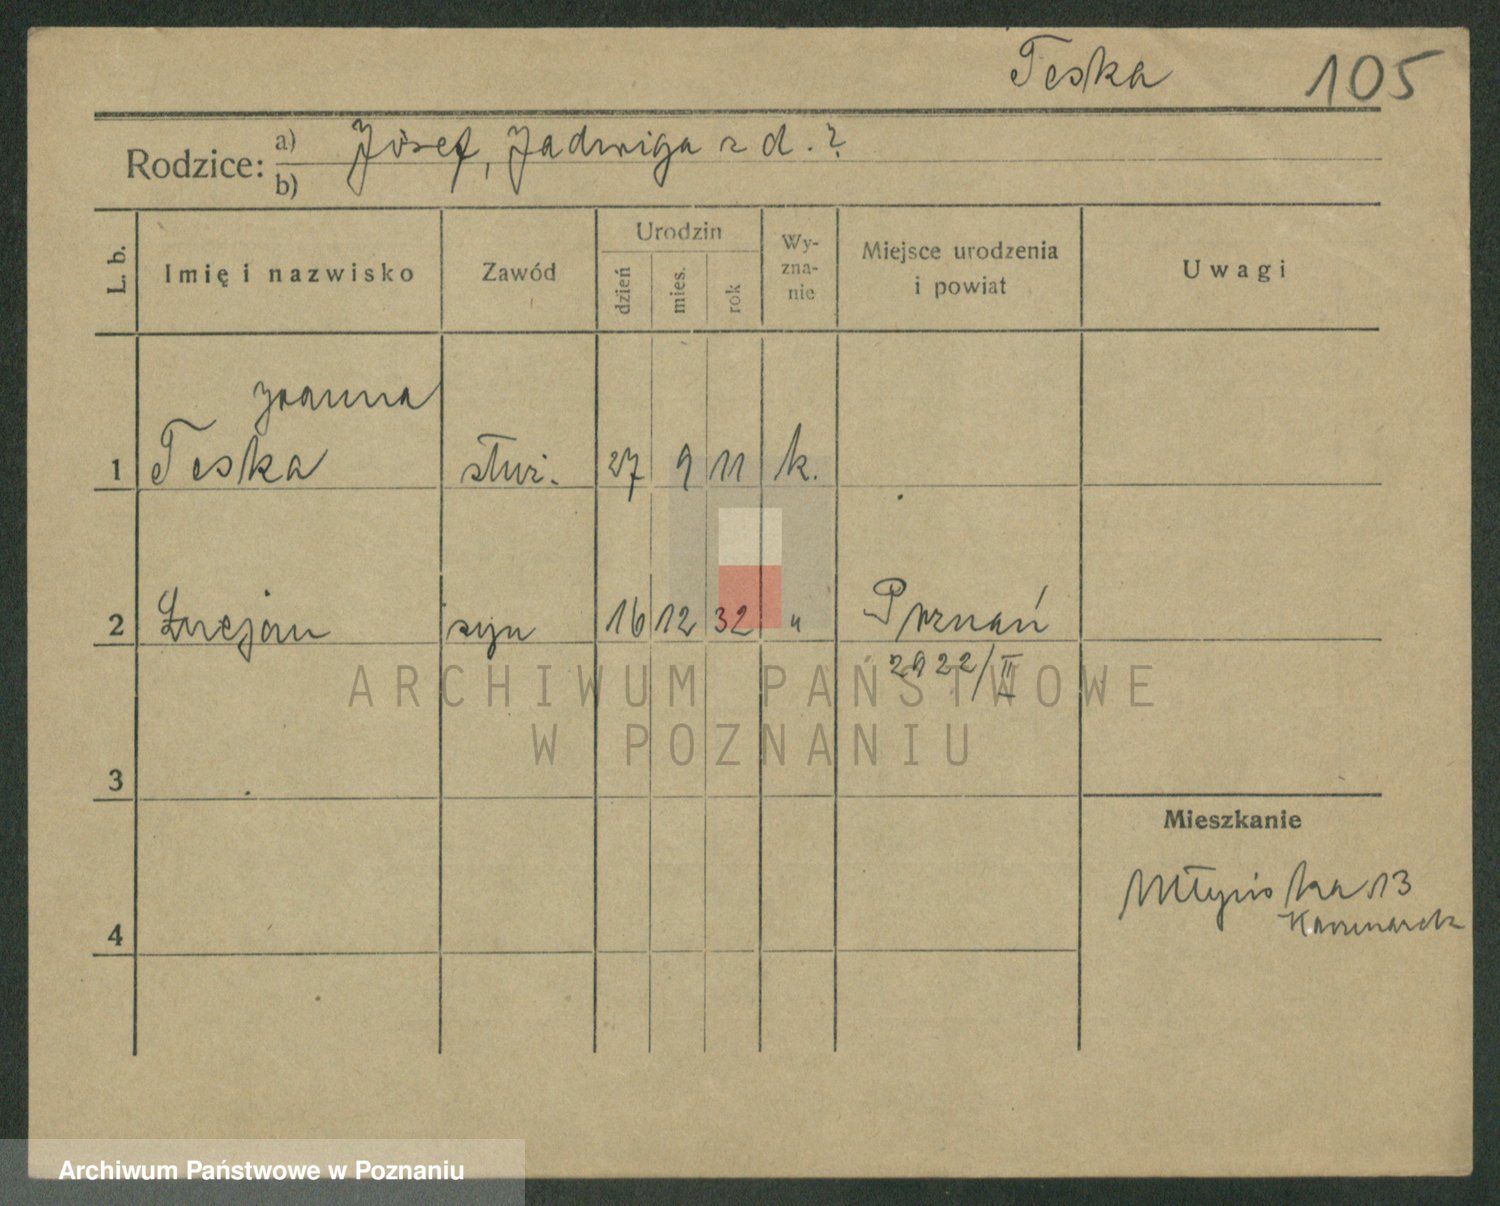 Teska 105
Rodzice: a) Józef, Jadwiga z d. ?
b)
L. b. Imię i nazwisko Zawód Urodzin dzień mies. rok Wy-
zna-
nie Miejsce urodzenia
i powiat Uwagi
Joanna
1 Teska służ. 27 9 11 k.
2 Lucjan syn 16 12 32 " Poznań
2922/II
3
4
Mieszkanie
Młyńska 13
Kaczmarek
ARCHIWUM PAŃSTWOWE
W POZNANIU
Archiwum Państwowe w Poznaniu